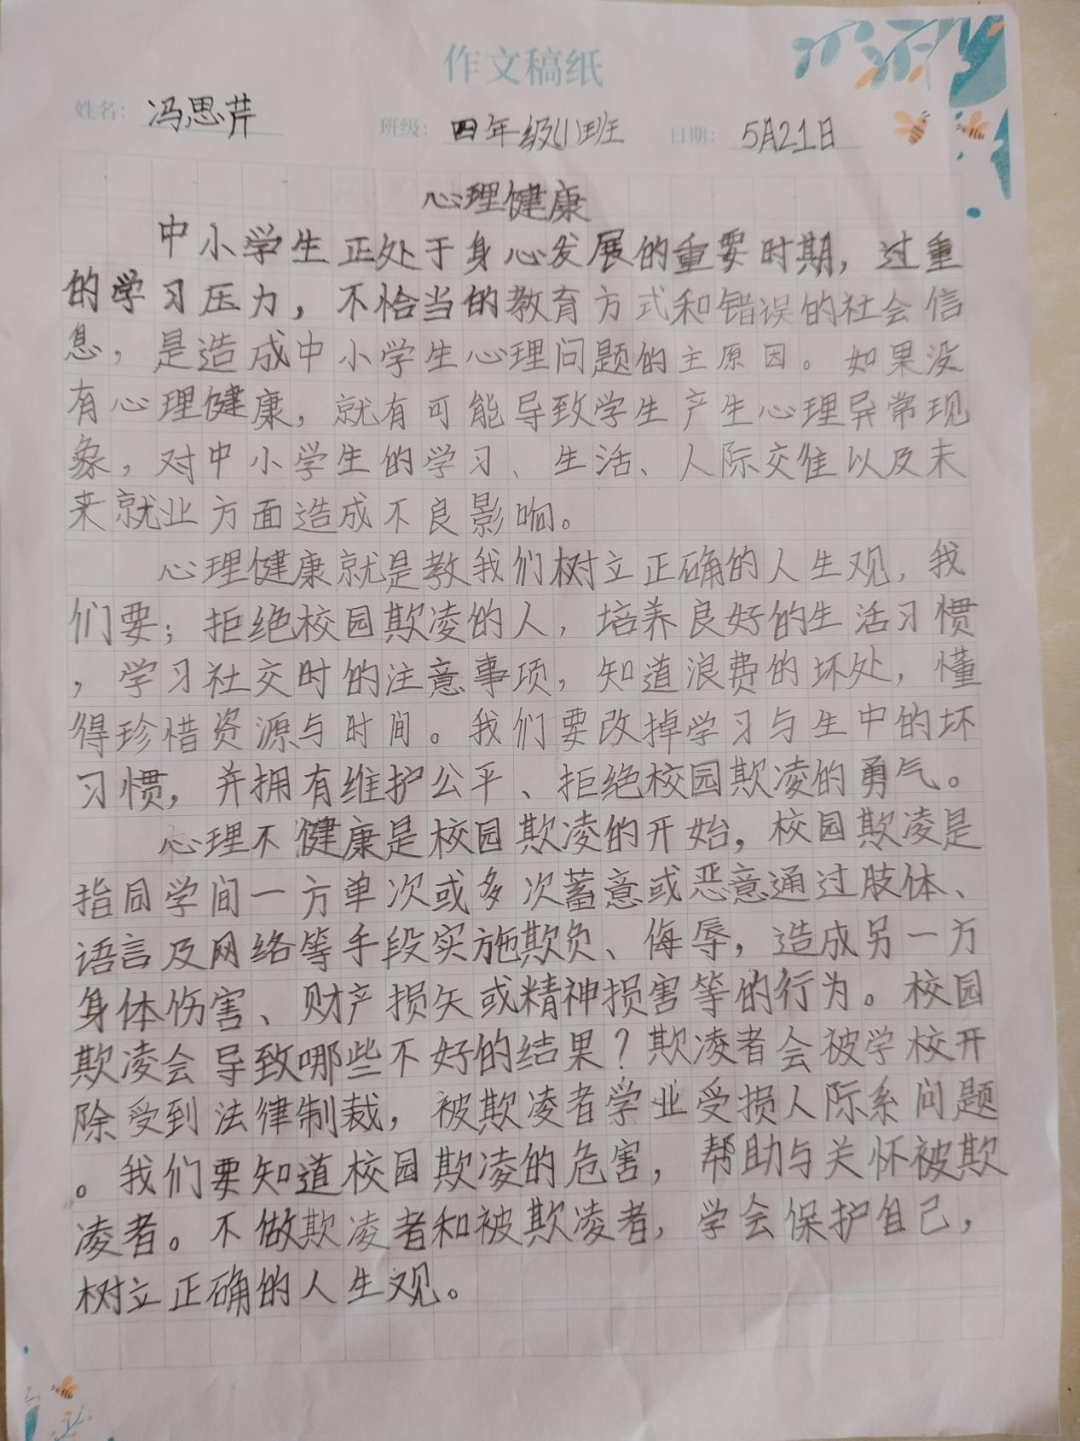 作文稿纸
姓名：冯思芹 班级：四年级(1)班 日期：5月21日
心理健康
中小学生正处于身心发展的重要时期，过重
的学习压力，不恰当的教育方式和错误的社会信
息，是造成中小学生心理问题的主原因。如果没
有心理健康，就有可能导致学生产生心理异常现
象，对中小学生的学习、生活、人际交往以及未
来就业方面造成不良影响。
心理健康就是教我们树立正确的人生观，我
们要；拒绝校园欺凌的人，培养良好的生活习惯
，学习社交时的注意事项，知道浪费的坏处，懂
得珍惜资源与时间。我们要改掉学习与生中的坏
习惯，并拥有维护公平、拒绝校园欺凌的勇气。
心理不健康是校园欺凌的开始，校园欺凌是
指同学间一方单次或多次蓄意或恶意通过肢体、
语言及网络等手段实施欺负、侮辱，造成另一方
身体伤害、财产损失或精神损害等的行为。校园
欺凌会导致哪些不好的结果？欺凌者会被学校开
除受到法律制裁，被欺凌者学业受损人际系问题
。我们要知道校园欺凌的危害，帮助与关怀被欺
凌者。不做欺凌者和被欺凌者，学会保护自己，
树立正确的人生观。